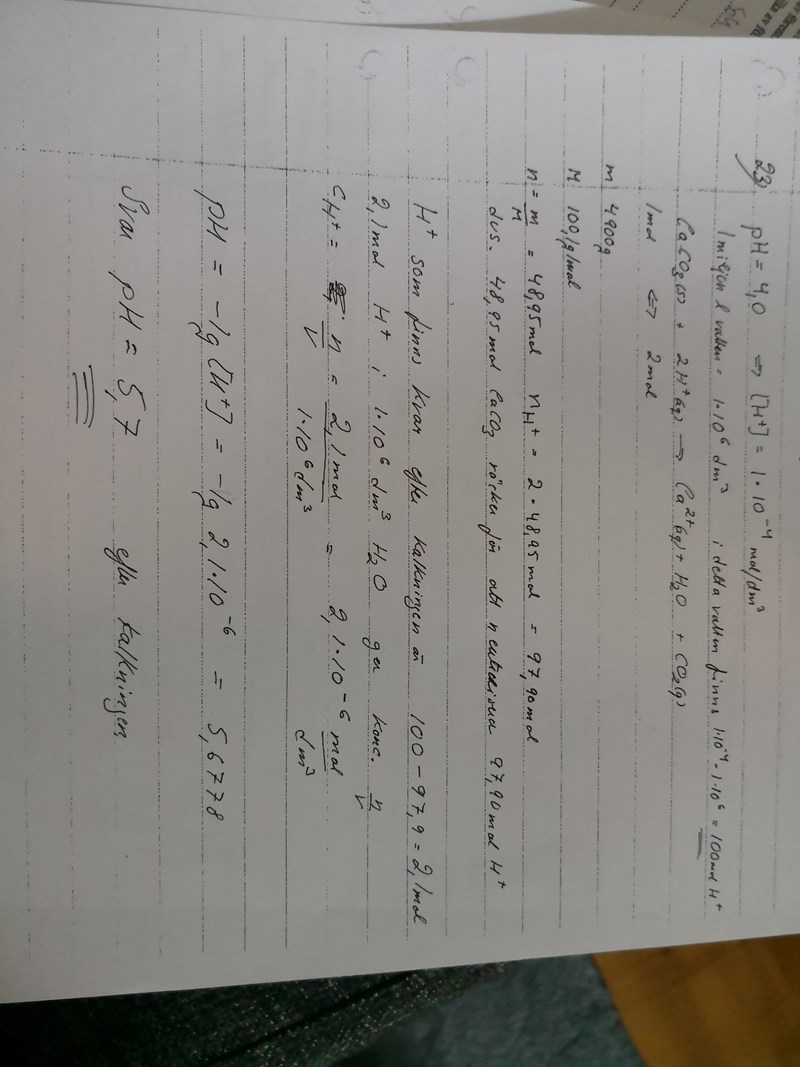 23) pH = 4,0 ⇒ [H⁺] = 1·10⁻⁴ mol/dm³
1 miljon l vatten = 1·10⁶ dm³ i detta vatten finns 1·10⁻⁴ · 1·10⁶ = 100 mol H⁺
CaCO₃(s) + 2H⁺(aq) → Ca²⁺(aq) + H₂O + CO₂(g)
1 mol ⇔ 2 mol
m 4900g
M 100,1g/mol
n = m/M = 48,95 mol n_H⁺ = 2 · 48,95 mol = 97,90 mol
dvs. 48,95 mol CaCO₃ räcker för att neutralisera 97,90 mol H⁺
H⁺ som finns kvar efter kalkningen är 100 - 97,9 = 2,1 mol
2,1 mol H⁺ i 1·10⁶ dm³ H₂O ger konc. n/V
c_H⁺ = n/V = 2,1 mol/1·10⁶ dm³ = 2,1·10⁻⁶ mol/dm³
pH = -lg [H⁺] = -lg 2,1·10⁻⁶ = 5,6778
Svar pH = 5,7 efter kalkningen